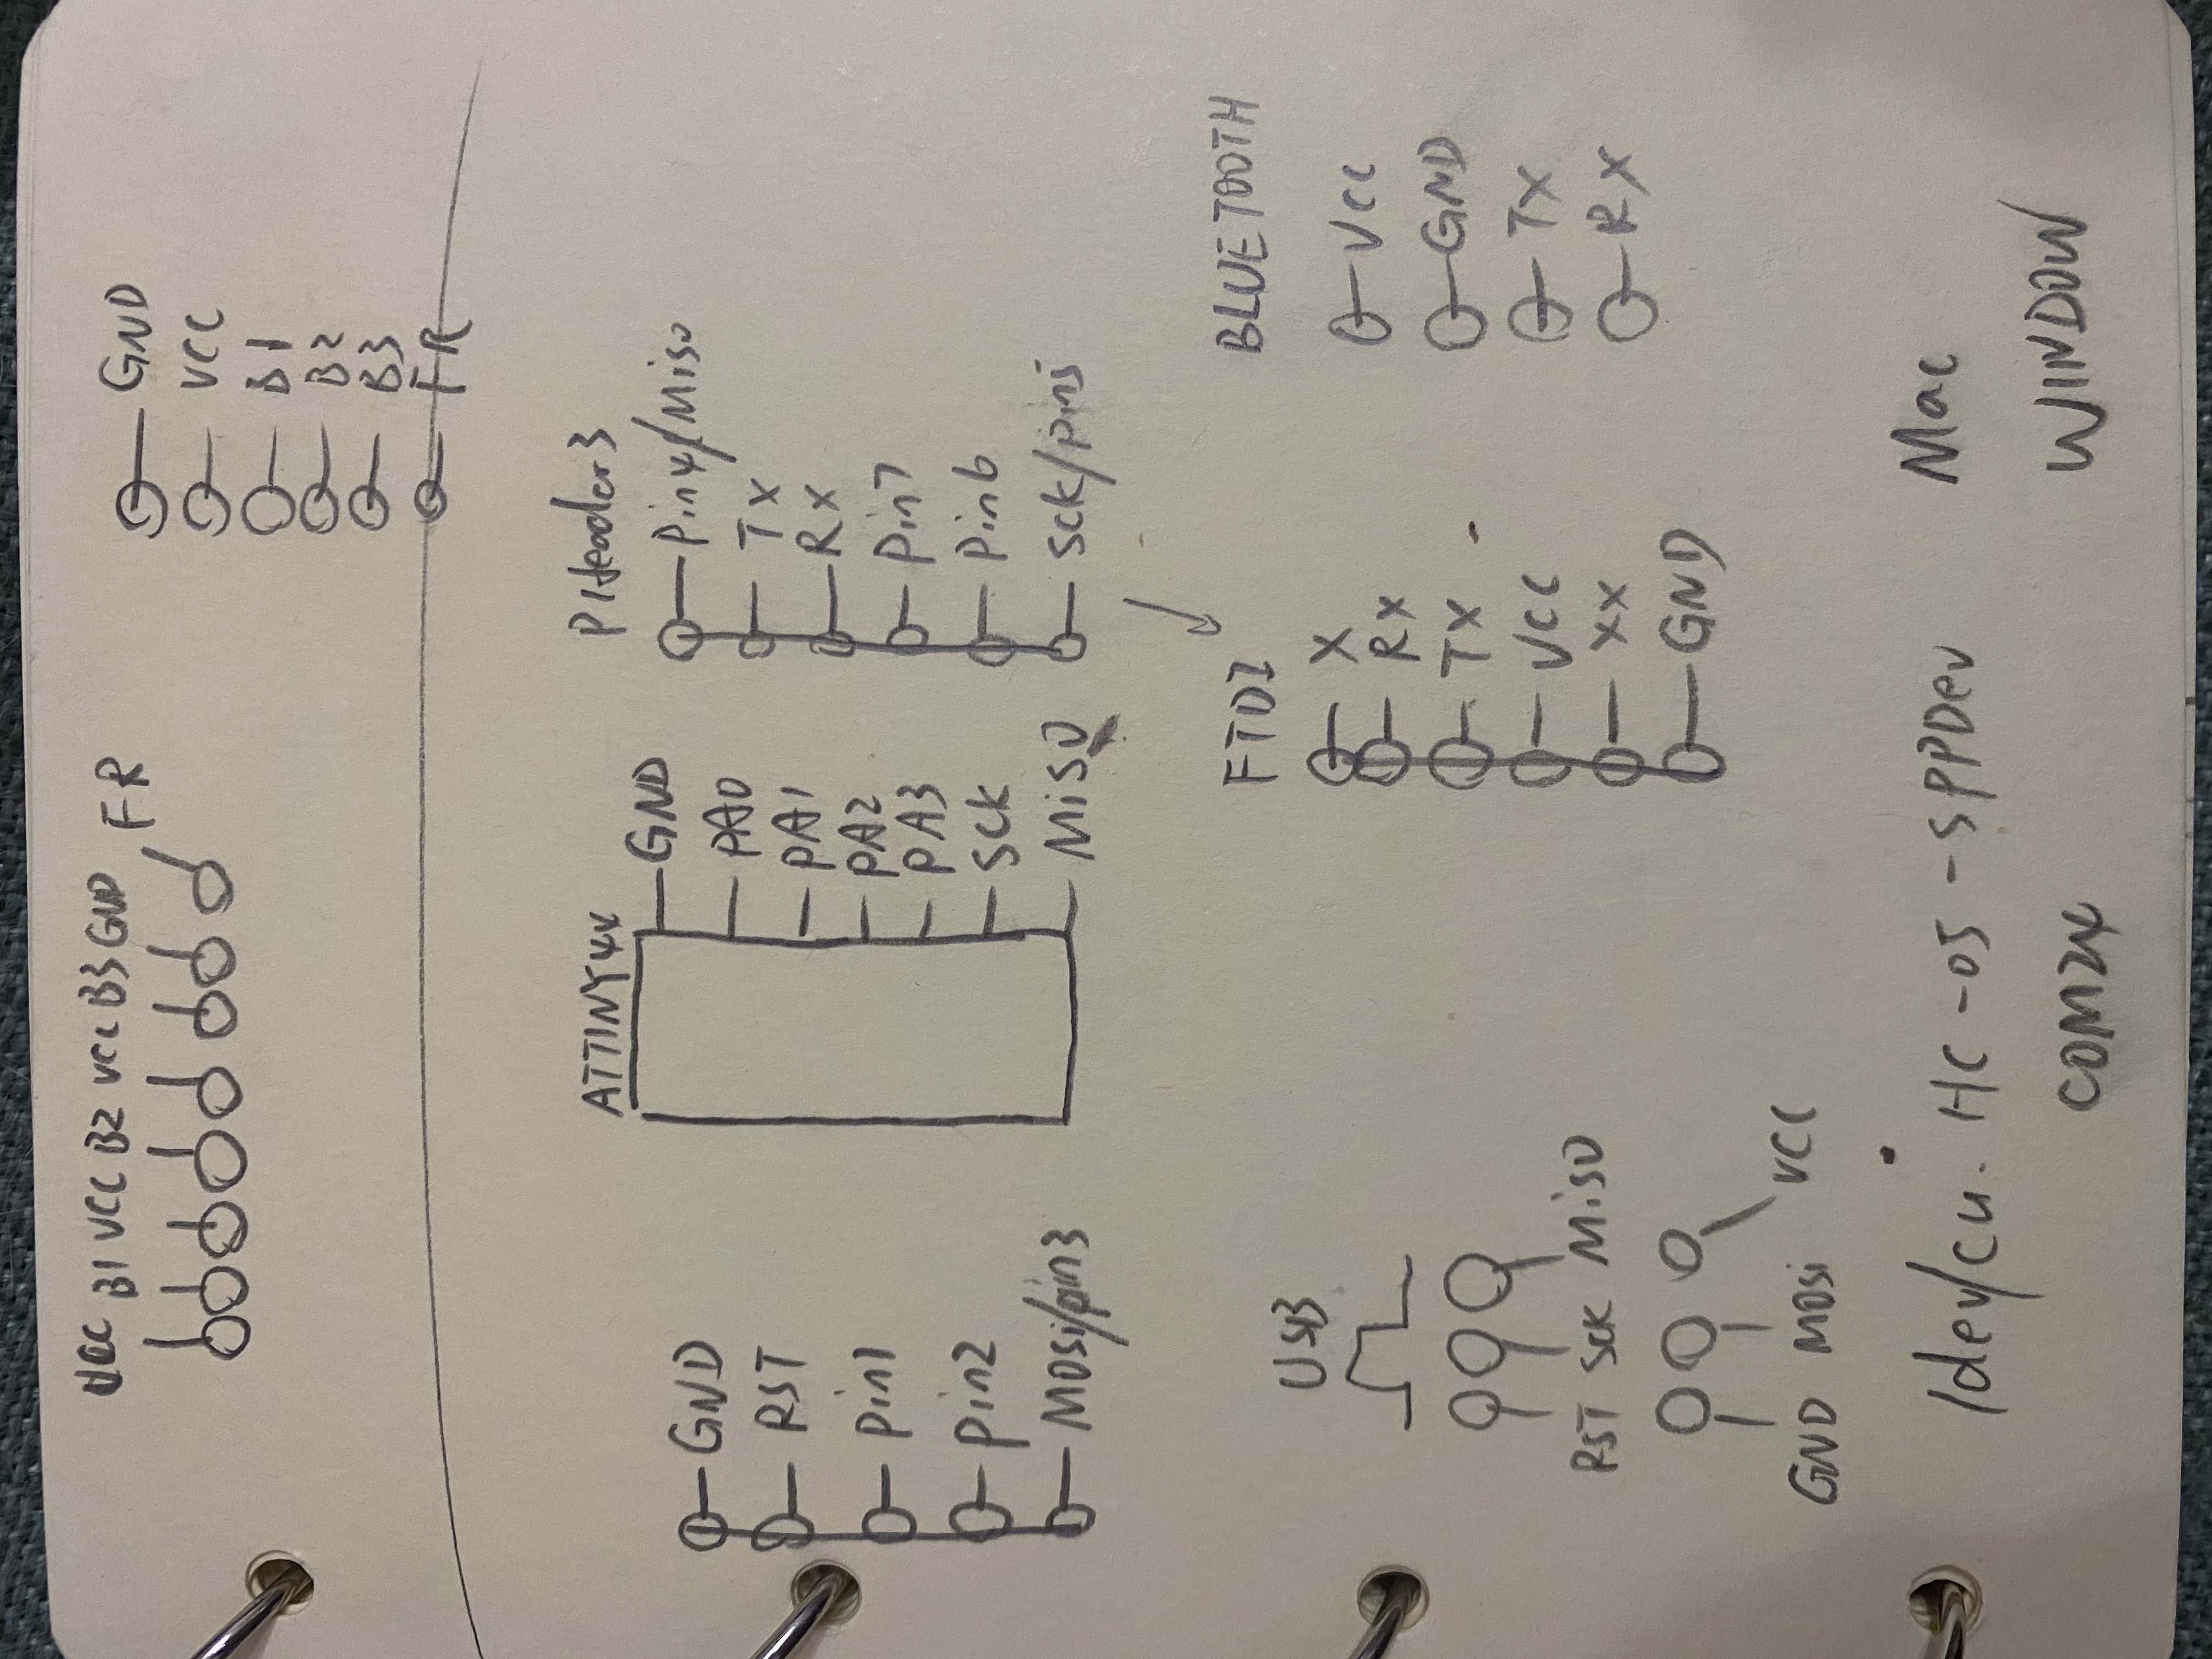 VCC B1 VCC B2 VCC B3 GND FR
GND
VCC
B1
B2
B3
FR
ATTINY44
PHeader3
GND
RST
Pin1
Pin2
MOSi/pin3
GND
PA0
PA1
PA2
PA3
SCK
MiSO
Pin4/Miso
Tx
Rx
Pin7
Pin6
Sck/pin5
USB
RST SCK MiSO
GND MOSi VCC
FTDI
X
RX
TX
VCC
XX
GND
BLUETOOTH
VCC
GND
TX
RX
/dev/cu.HC-05-SPPDev Mac
COM24 WINDOW